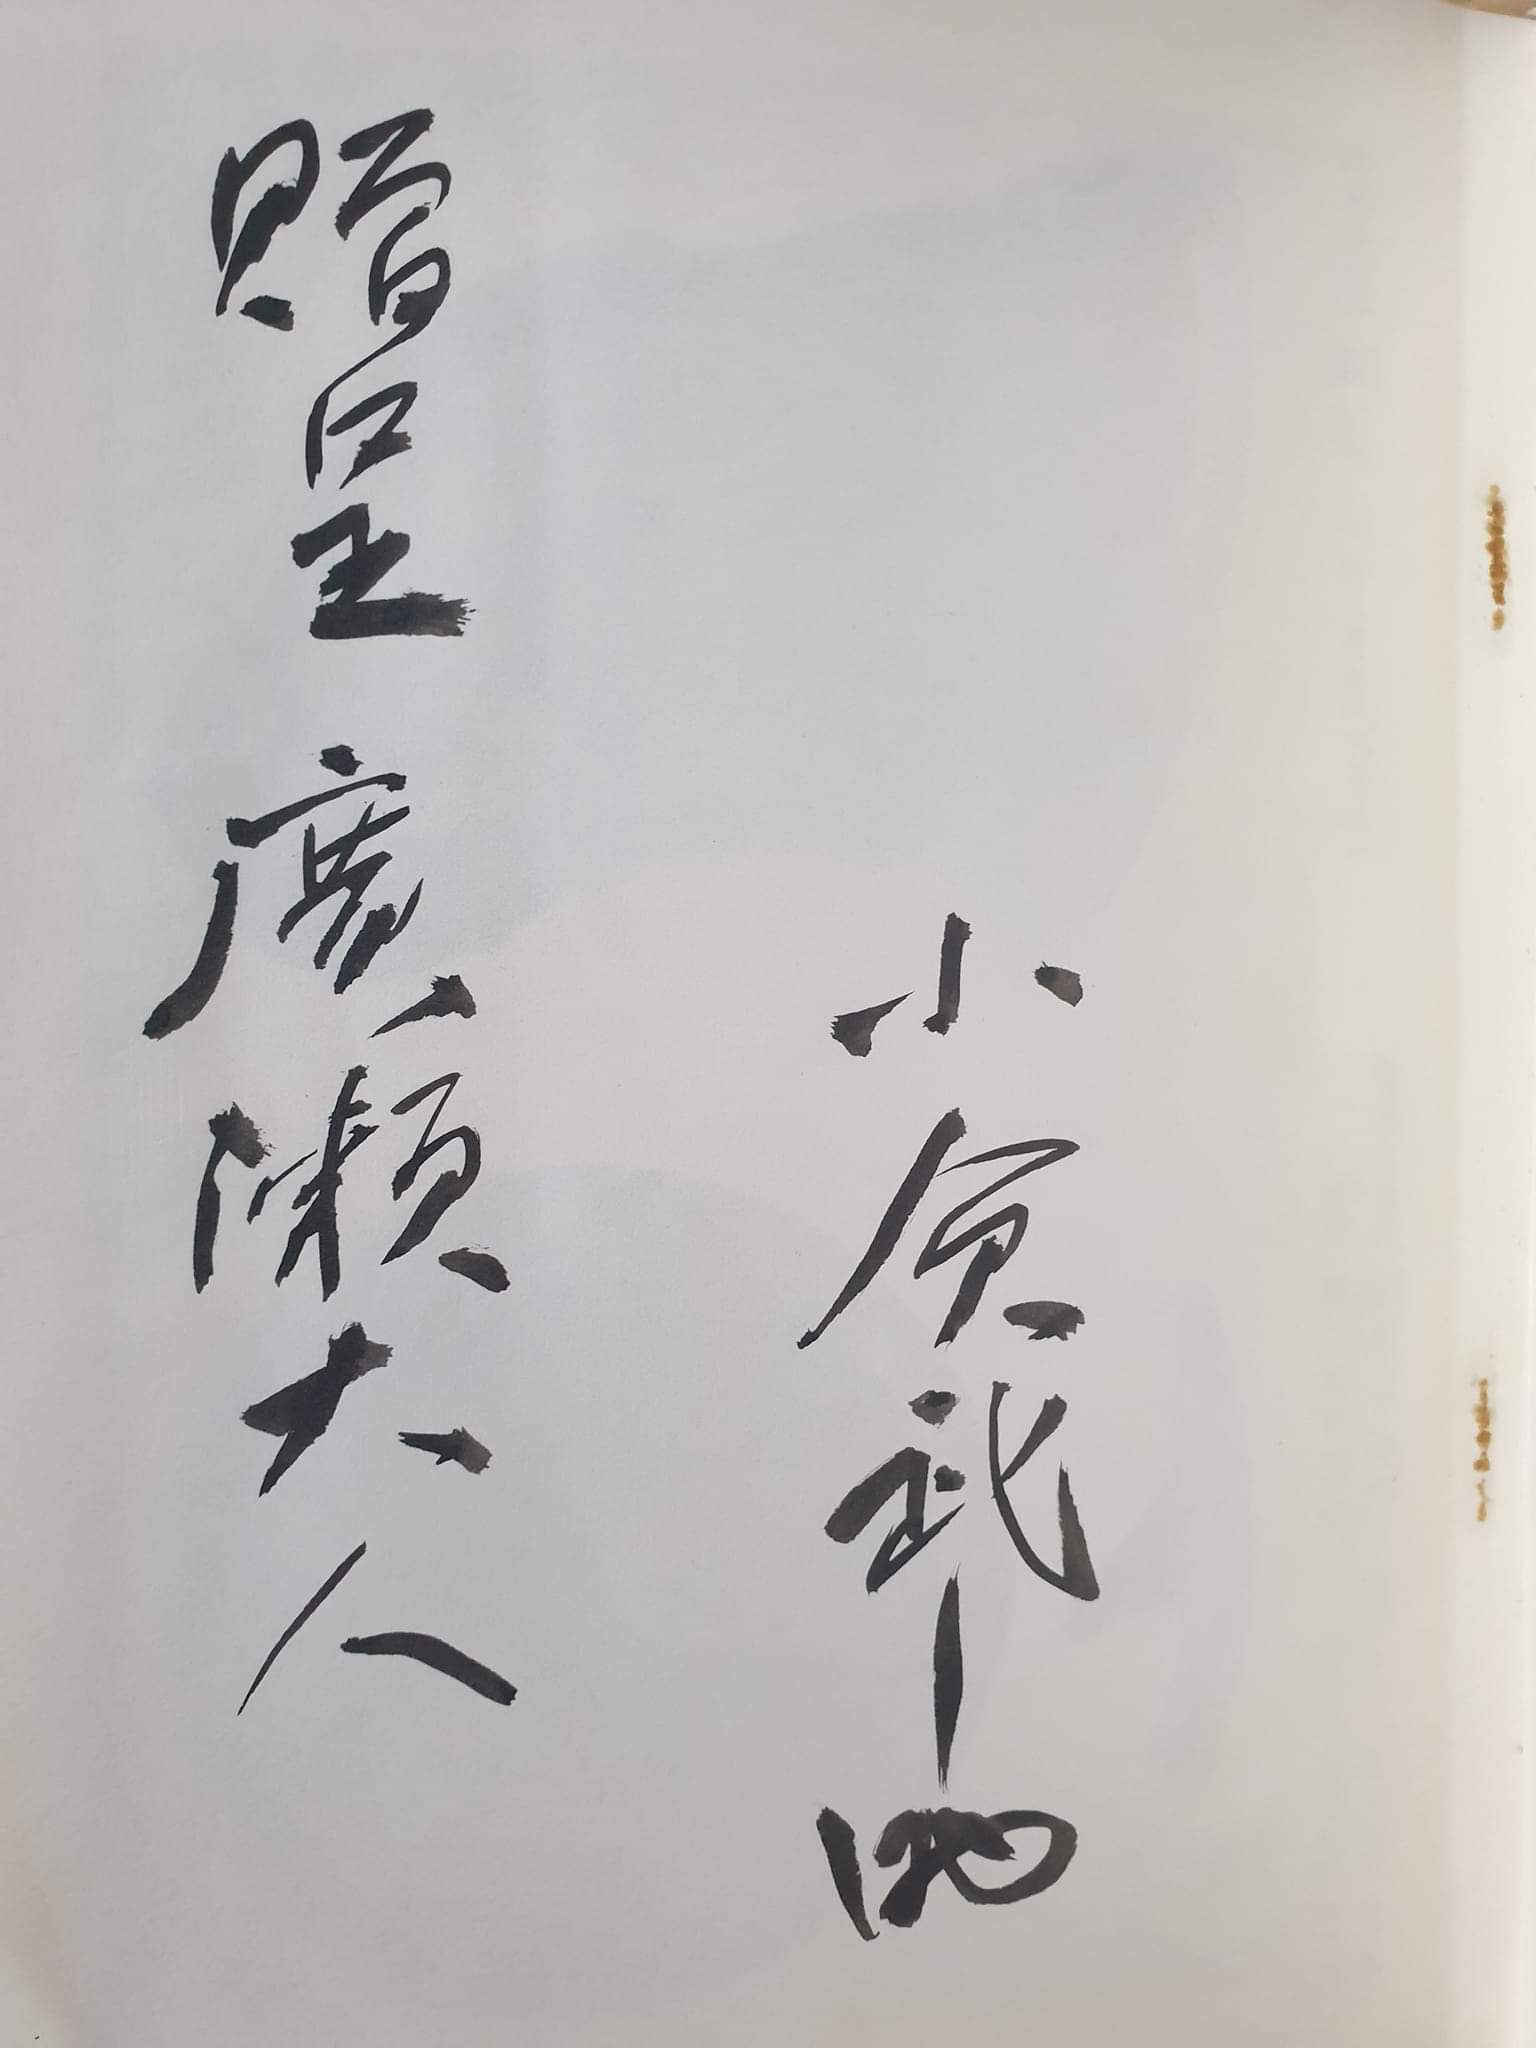 小倉武
贈呈 廣瀬大人